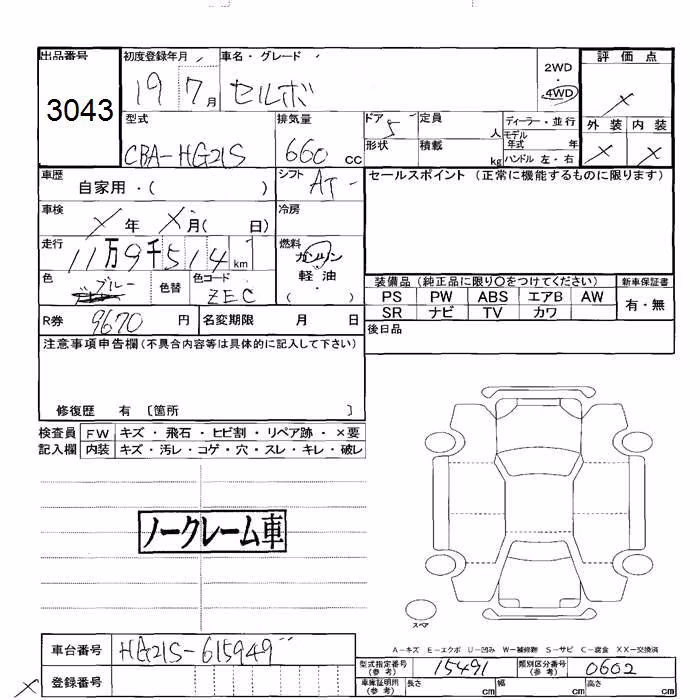 出品番号 初度登録年月 車名・グレード 評価点
3043 19 7月 セルボ 2WD・4WD ×
型式 排気量 ドア 5 定員 人 ディーラー・並行 外装 内装
CBA-HG21S 660 cc 形状 積載 kg モデル年式 年 × ×
ハンドル 左・右
車歴 自家用・( ) シフト AT セールスポイント (正常に機能するものに限ります)
車検 × 年 ×月( 日) 冷房
走行 11万9千514km 燃料 ガソリン・軽油( )
色 ブルー 色替 色コード ZEC
装備品 (純正品に限り〇をつけてください) 新車保証書
PS PW ABS エアB AW 有・無
SR ナビ TV カワ
R券 9670 円 名変期限 月 日 後日品
注意事項申告欄(不具合内容等は具体的に記入して下さい)
修復歴 有 〔箇所 〕
検査員 FW キズ・飛石・ヒビ割・リペア跡・×要
記入欄 内装 キズ・汚レ・コゲ・穴・スレ・キレ・破レ
ノークレーム車
スペア
A-キズ E-エクボ U-凹み W-補修跡 S-サビ C-腐食 XX-交換済
車台番号 HG21S-615949 型式指定番号(参考) 15491 類別区分番号(参考) 0602
× 登録番号 車庫証明用(参考) 長さ cm 幅 cm 高さ cm